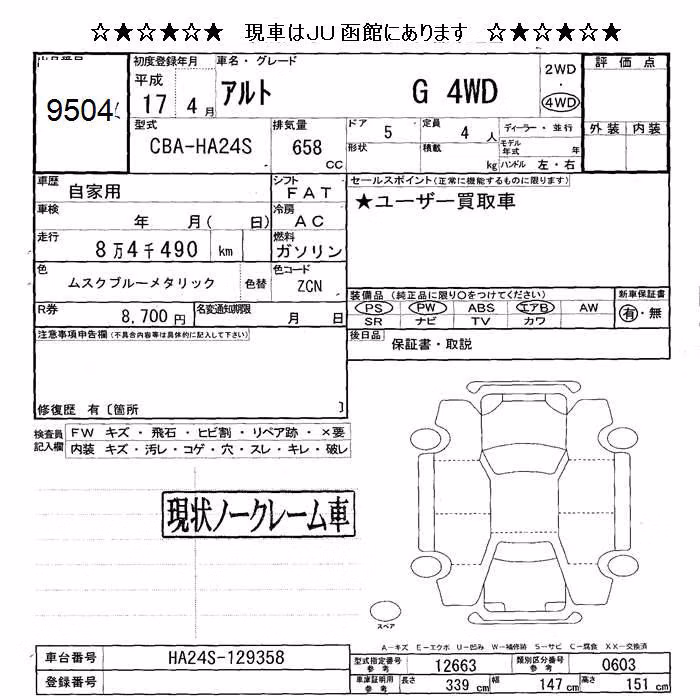 ☆★☆★☆★ 現車はJU函館にあります ☆★☆★☆★
初度登録年月 車名・グレード 2WD 評価点
9504 平成 17年 4月 アルト G 4WD ・ 4WD
型式 排気量 ドア 5 定員 4人 ディーラー・並行 外装 内装
CBA-HA24S 658 CC 形状 積載 kg モデル年式 年
ハンドル 左・右
車歴 自家用 シフト FAT セールスポイント(正常に機能するものに限ります)
車検 年 月( 日) 冷房 AC ★ユーザー買取車
走行 8万4千490 km 燃料 ガソリン
色 ムスクブルーメタリック 色替 色コード ZCN
装備品 (純正品に限り〇をつけてください) 新車保証書
R券 8,700円 名変通知期限 月 日 PS PW ABS エアB AW 有・無
SR ナビ TV カワ
注意事項申告欄(不具合内容等は具体的に記入して下さい) 後日品 保証書・取説
修復歴 有〔箇所 〕
検査員記入欄 FW キズ・飛石・ヒビ割・リペア跡・×要
内装 キズ・汚レ・コゲ・穴・スレ・キレ・破レ
現状ノークレーム車
スペア
A-キズ E-エクボ U-凹み W-補修跡 S-サビ C-腐食 XX-交換済
車台番号 HA24S-129358 型式指定番号 参考 12663 類別区分番号 参考 0603
登録番号 車庫証明用 参考 長さ 339 cm 幅 147 cm 高さ 151 cm